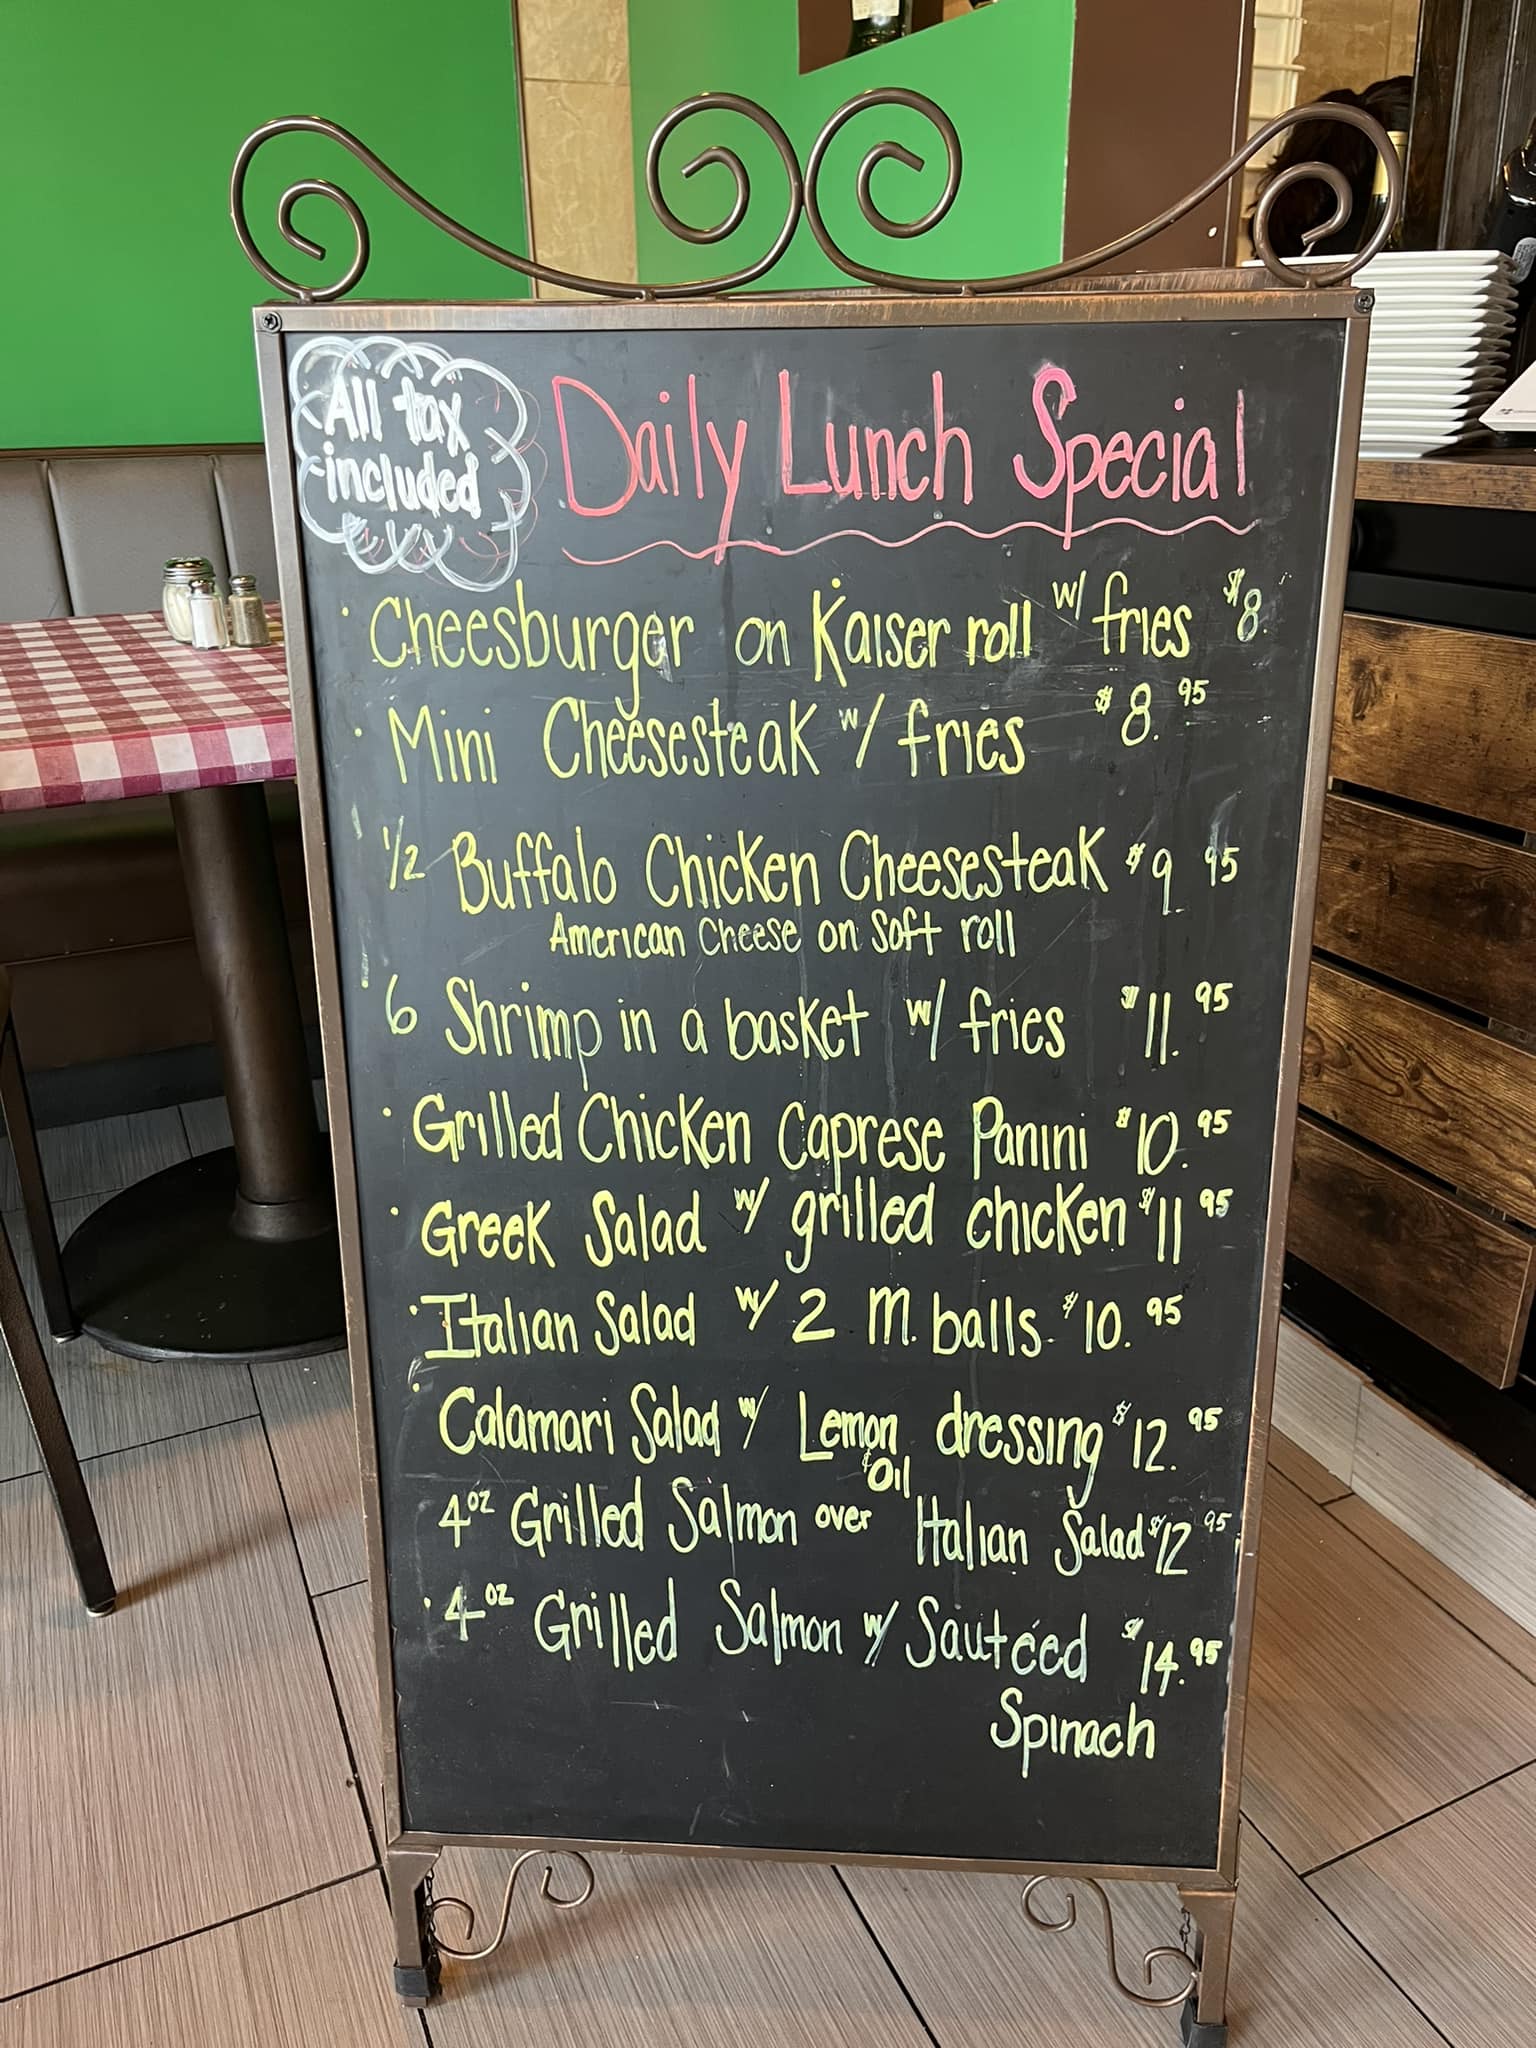 All tax
included
Daily Lunch Special
· Cheesburger on Kaiser roll w/ fries $8.
· Mini Cheesesteak w/ fries $8.95
1/2 Buffalo Chicken Cheesesteak $9 95
American Cheese on soft roll
6 Shrimp in a basket w/ fries $11.95
· Grilled Chicken Caprese Panini $10.95
· Greek Salad w/ grilled chicken $11 95
· Italian Salad w/ 2 m. balls $10.95
· Calamari Salad w/ Lemon dressing $12.95
& Oil
4oz Grilled Salmon over Italian Salad $12 95
· 4oz Grilled Salmon w/ Sautéed $14.95
Spinach